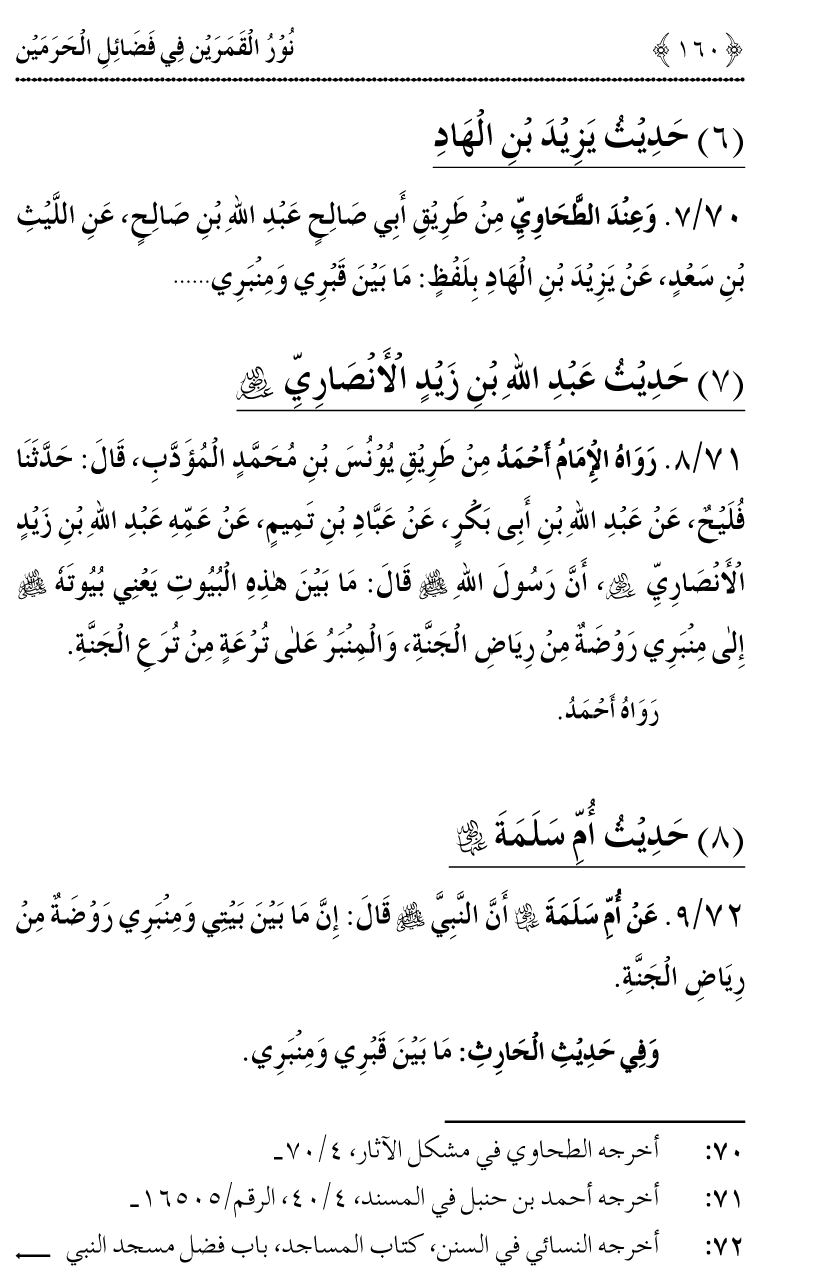 ﴿١٦٠﴾ نُوْرُ الْقَمَرَيْن فِي فَضَائِلِ الْحَرَمَيْن
(٦) حَدِيْثُ يَزِيْدَ بْنِ الْهَادِ
٧/٧٠. وَعِنْدَ الطَّحَاوِيِّ مِنْ طَرِيْقِ أَبِي صَالِحٍ عَبْدِ اللهِ بْنِ صَالِحٍ، عَنِ اللَّيْثِ
بْنِ سَعْدٍ، عَنْ يَزِيْدَ بْنِ الْهَادِ بِلَفْظٍ: مَا بَيْنَ قَبْرِي وَمِنْبَرِي......
(٧) حَدِيْثُ عَبْدِ اللهِ بْنِ زَيْدٍ الْأَنْصَارِيِّ رضي الله عنه
٨/٧١. رَوَاهُ الْإِمَامُ أَحْمَدُ مِنْ طَرِيْقِ يُوْنُسَ بْنِ مُحَمَّدٍ الْمُؤَدَّبِ، قَالَ: حَدَّثَنَا
فُلَيْحٌ، عَنْ عَبْدِ اللهِ بْنِ أَبِى بَكْرٍ، عَنْ عَبَّادِ بْنِ تَمِيمٍ، عَنْ عَمِّهِ عَبْدِ اللهِ بْنِ زَيْدٍ
الْأَنْصَارِيِّ رضي الله عنه، أَنَّ رَسُولَ اللهِ ﷺ قَالَ: مَا بَيْنَ هٰذِهِ الْبُيُوتِ يَعْنِي بُيُوتَهٗ ﷺ
إِلٰى مِنْبَرِي رَوْضَةٌ مِنْ رِيَاضِ الْجَنَّةِ، وَالْمِنْبَرُ عَلٰى تُرْعَةٍ مِنْ تُرَعِ الْجَنَّةِ.
رَوَاهُ أَحْمَدُ.
(٨) حَدِيْثُ أُمِّ سَلَمَةَ رضي الله عنها
٩/٧٢. عَنْ أُمِّ سَلَمَةَ رضي الله عنها أَنَّ النَّبِيَّ ﷺ قَالَ: إِنَّ مَا بَيْنَ بَيْتِي وَمِنْبَرِي رَوْضَةٌ مِنْ
رِيَاضِ الْجَنَّةِ.
وَفِي حَدِيْثِ الْحَارِثِ: مَا بَيْنَ قَبْرِي وَمِنْبَرِي.
٧٠: أخرجه الطحاوي في مشكل الآثار، ٤/٧٠ـ
٧١: أخرجه أحمد بن حنبل في المسند، ٤/٤٠، الرقم/١٦٥٠٥ـ
٧٢: أخرجه النسائي في السنن، كتاب المساجد، باب فضل مسجد النبي